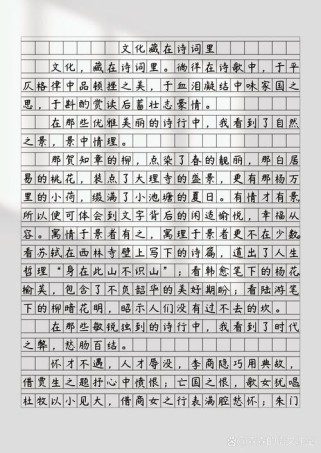 文化藏在诗词里
文化，藏在诗词里。徜徉在诗歌中，于平
仄格律中品顿挫之美，于血泪凝结中味家国之
思，于斟酌赏读后蓄壮志豪情。
在那些优雅美丽的诗行中，我看到了自然
之景，景中情理。
那贺知章的柳，点染了春的靓丽，那白居
易的桃花，装点了大理寺的盛景，更有那杨万
里的小荷，缀满了小池塘的夏日。有情才有景，
所以便可体会到文字背后的闲适愉悦，幸福从
容。寓情于景者有之，寓理于景者更不在少数。
看苏轼在西林寺壁上写下的诗篇，道出了人生
哲理“身在此山不识山”；看韩愈笔下的杨花
榆荚，包含了不负韶华的美好期盼；看陆游笔
下的柳暗花明，昭示人们没有过不去的坎。
在那些敏锐独到的诗行中，我看到了时代
之弊，愁肠百结。
怀才不遇，人才辱没，李商隐巧用典故，
借贾生之题抒心中愤恨；亡国之恨，歌女犹唱
杜牧以小见大，借商女之行表满腔愁怀；朱门